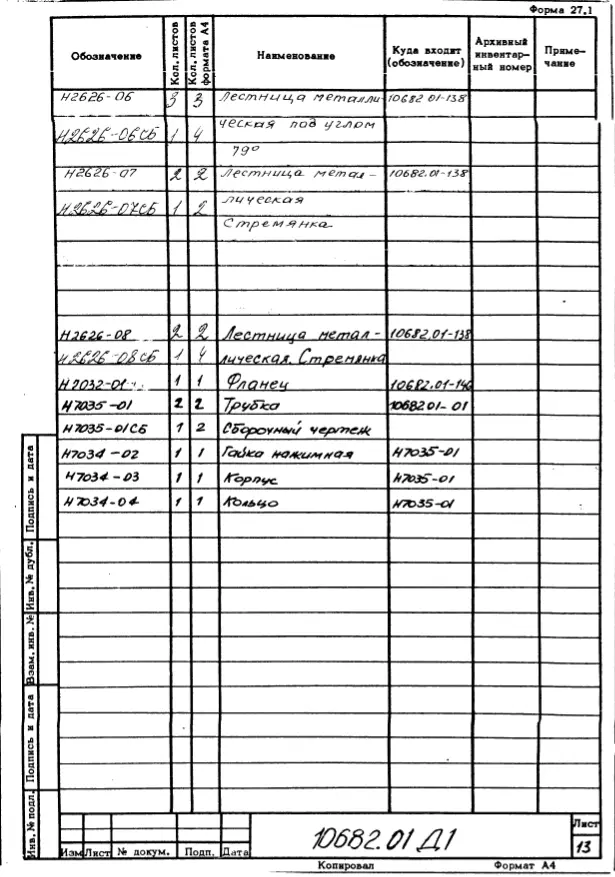 Форма 27.1
Обозначение Кол. листов Кол. листов формата А4 Наименование Куда входит (обозначение) Архивный инвентар-ный номер Приме-чание
Н2626-06 3 3 Лестница металли- 10682.01-138
Н2626-06СБ 1 4 ческая под углом
79°
Н2626-07 2 2 Лестница метал- 10682.01-138
Н2626-07СБ 1 2 лическая
Стремянка
Н2626-08 2 2 Лестница метал- 10682.01-138
Н2626-08СБ 1 4 лическая. Стремянка
Н2032-01 1 1 Фланец 10682.01-146
Н7035-01 2 2 Трубка 10682 01-01
Н7035-01СБ 1 2 Сборочный чертеж
Н7034-02 1 1 Гайка нажимная Н7035-01
Н7034-03 1 1 Корпус Н7035-01
Н7034-04 1 1 Кольцо Н7035-01
Подпись и дата
Инв. № дубл.
Взам. инв. №
Подпись и дата
Инв. № подл.
Изм Лист № докум. Подп. Дата
10682.01 Д1
Лист
13
Копировал Формат А4